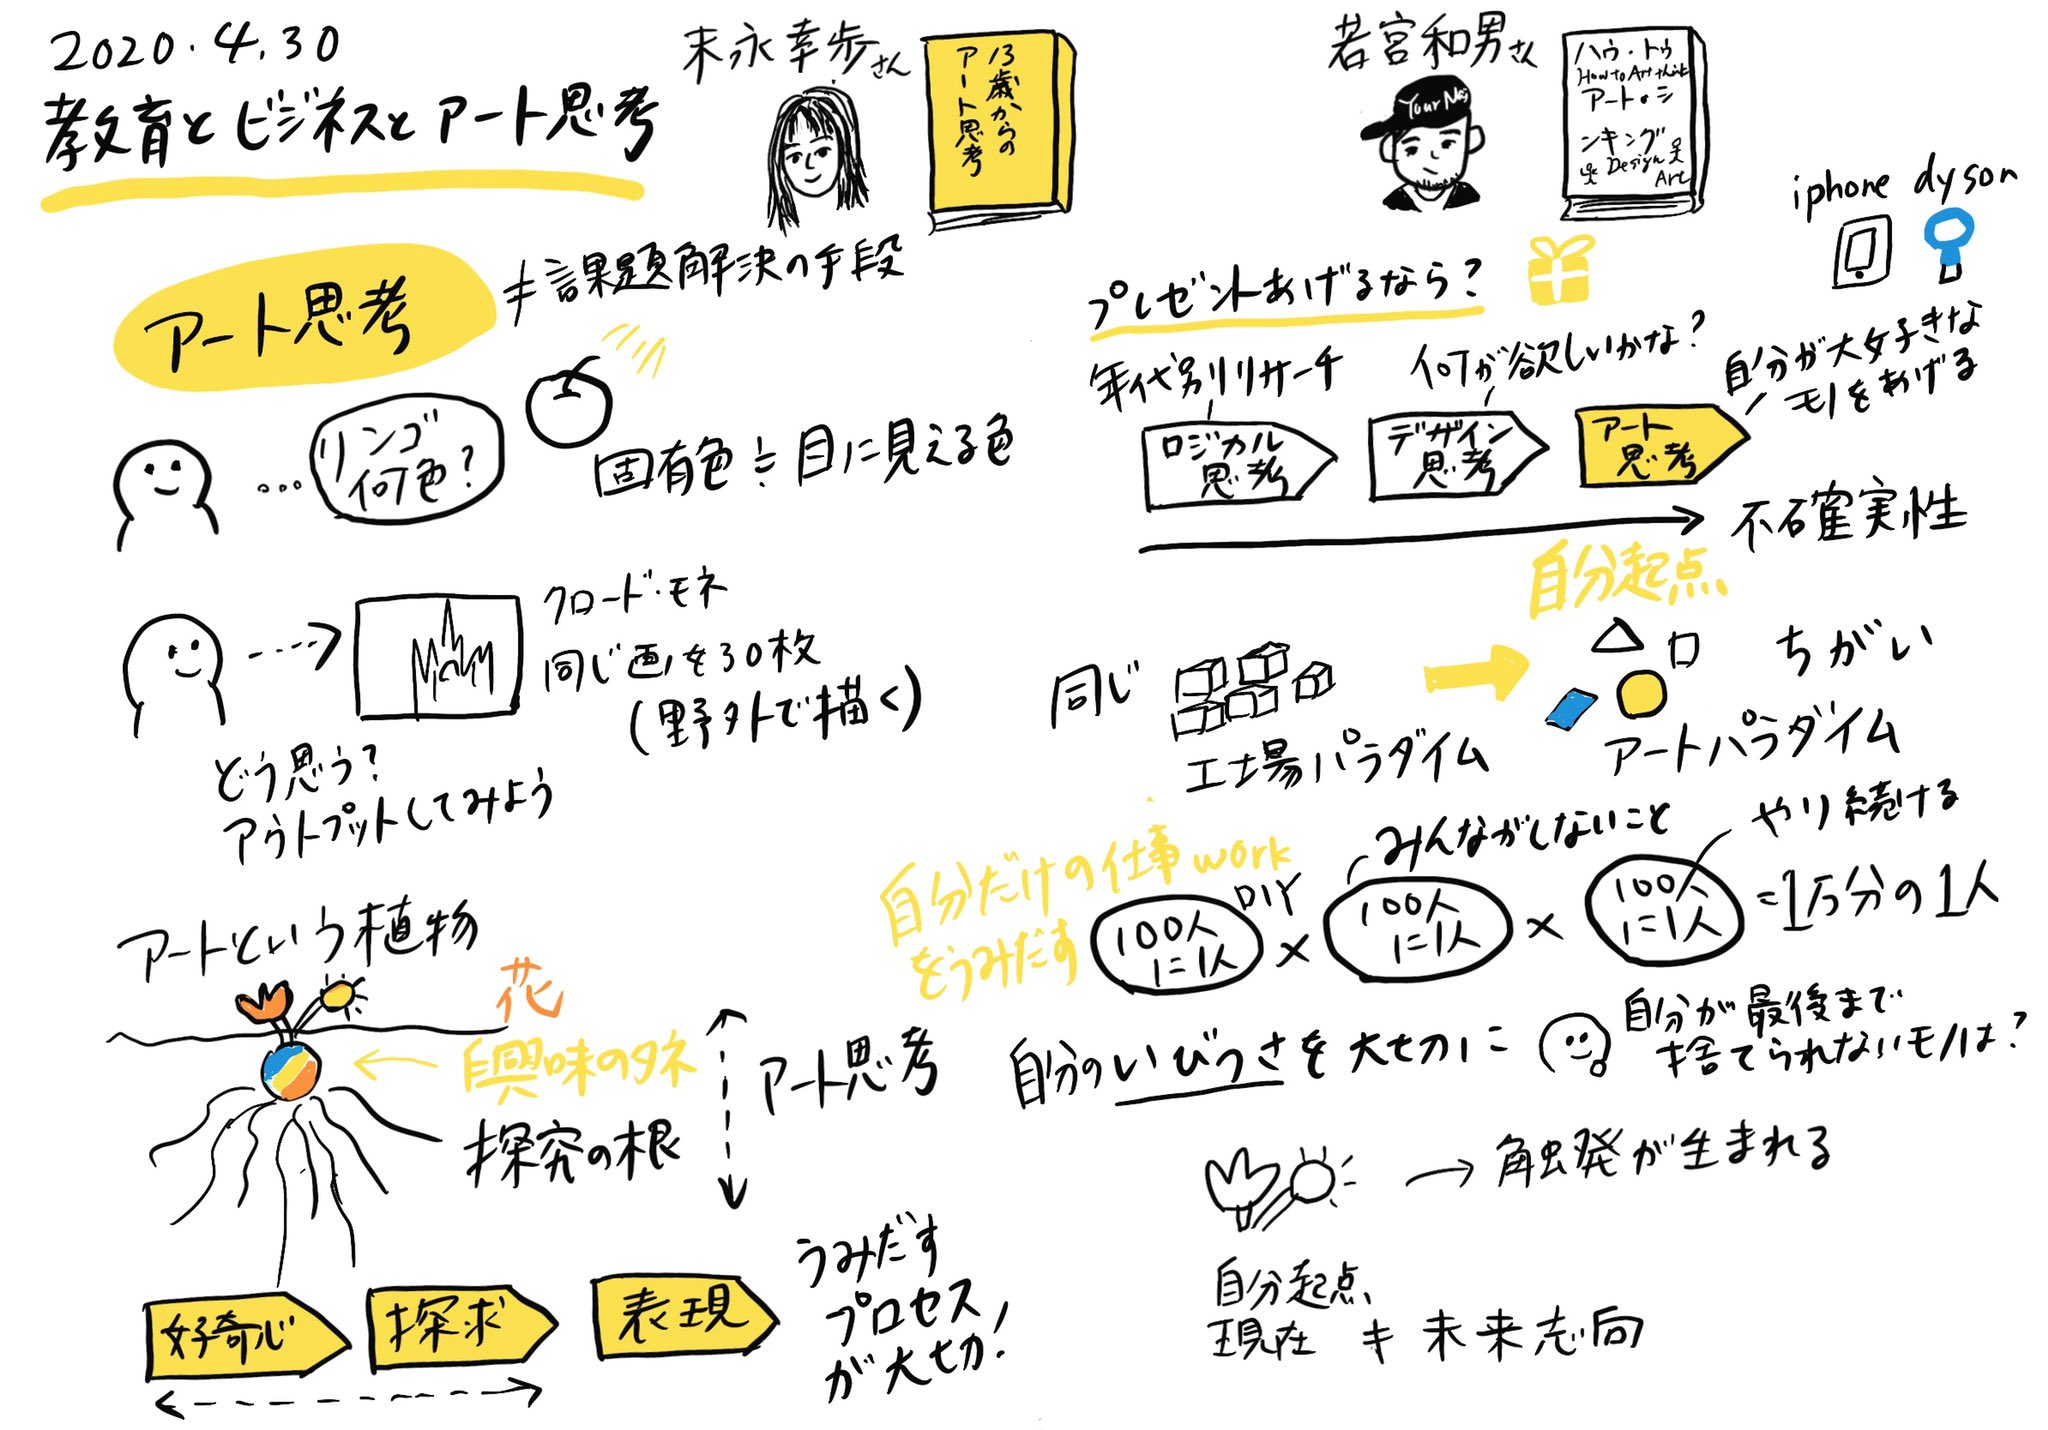 2020.4.30
教育とビジネスとアート思考
末永幸歩さん
13歳からの
アート思考
アート思考
≠課題解決の手段
リンゴ
何色？
固有色≒目に見える色
クロード・モネ
同じ画を30枚
(野外で描く)
どう思う？
アウトプットしてみよう
アートという植物
花
興味のタネ
探究の根
アート思考
好奇心
探求
表現
うみだす
プロセス
が大切！
若宮和男さん
Your Na
ハウ・トゥ
How to Art think
アート・シ
ンキング
Design
Art
iphone dyson
プレゼントあげるなら？
年代別リサーチ
何が欲しいかな？
自分が大好きな
モノをあげる
ロジカル
思考
デザイン
思考
アート
思考
不確実性
自分起点
同じ
工場パラダイム
ちがい
アートパラダイム
自分だけの仕事work
をうみだす
DIY
みんながしないこと
やり続ける
100人
に1人
×
100人
に1人
×
100人
に1人
=1万分の1人
自分のいびつさを大切に
自分が最後まで
捨てられないモノは？
→触発が生まれる
自分起点
現在≠未来志向